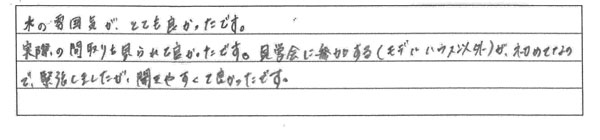 木の雰囲気が、とても良かったです。
実際の間取りを見られて良かったです。見学会に参加する(モデルハウス以外)が、初めてなの
で、緊張しましたが、聞きやすくて良かったです。